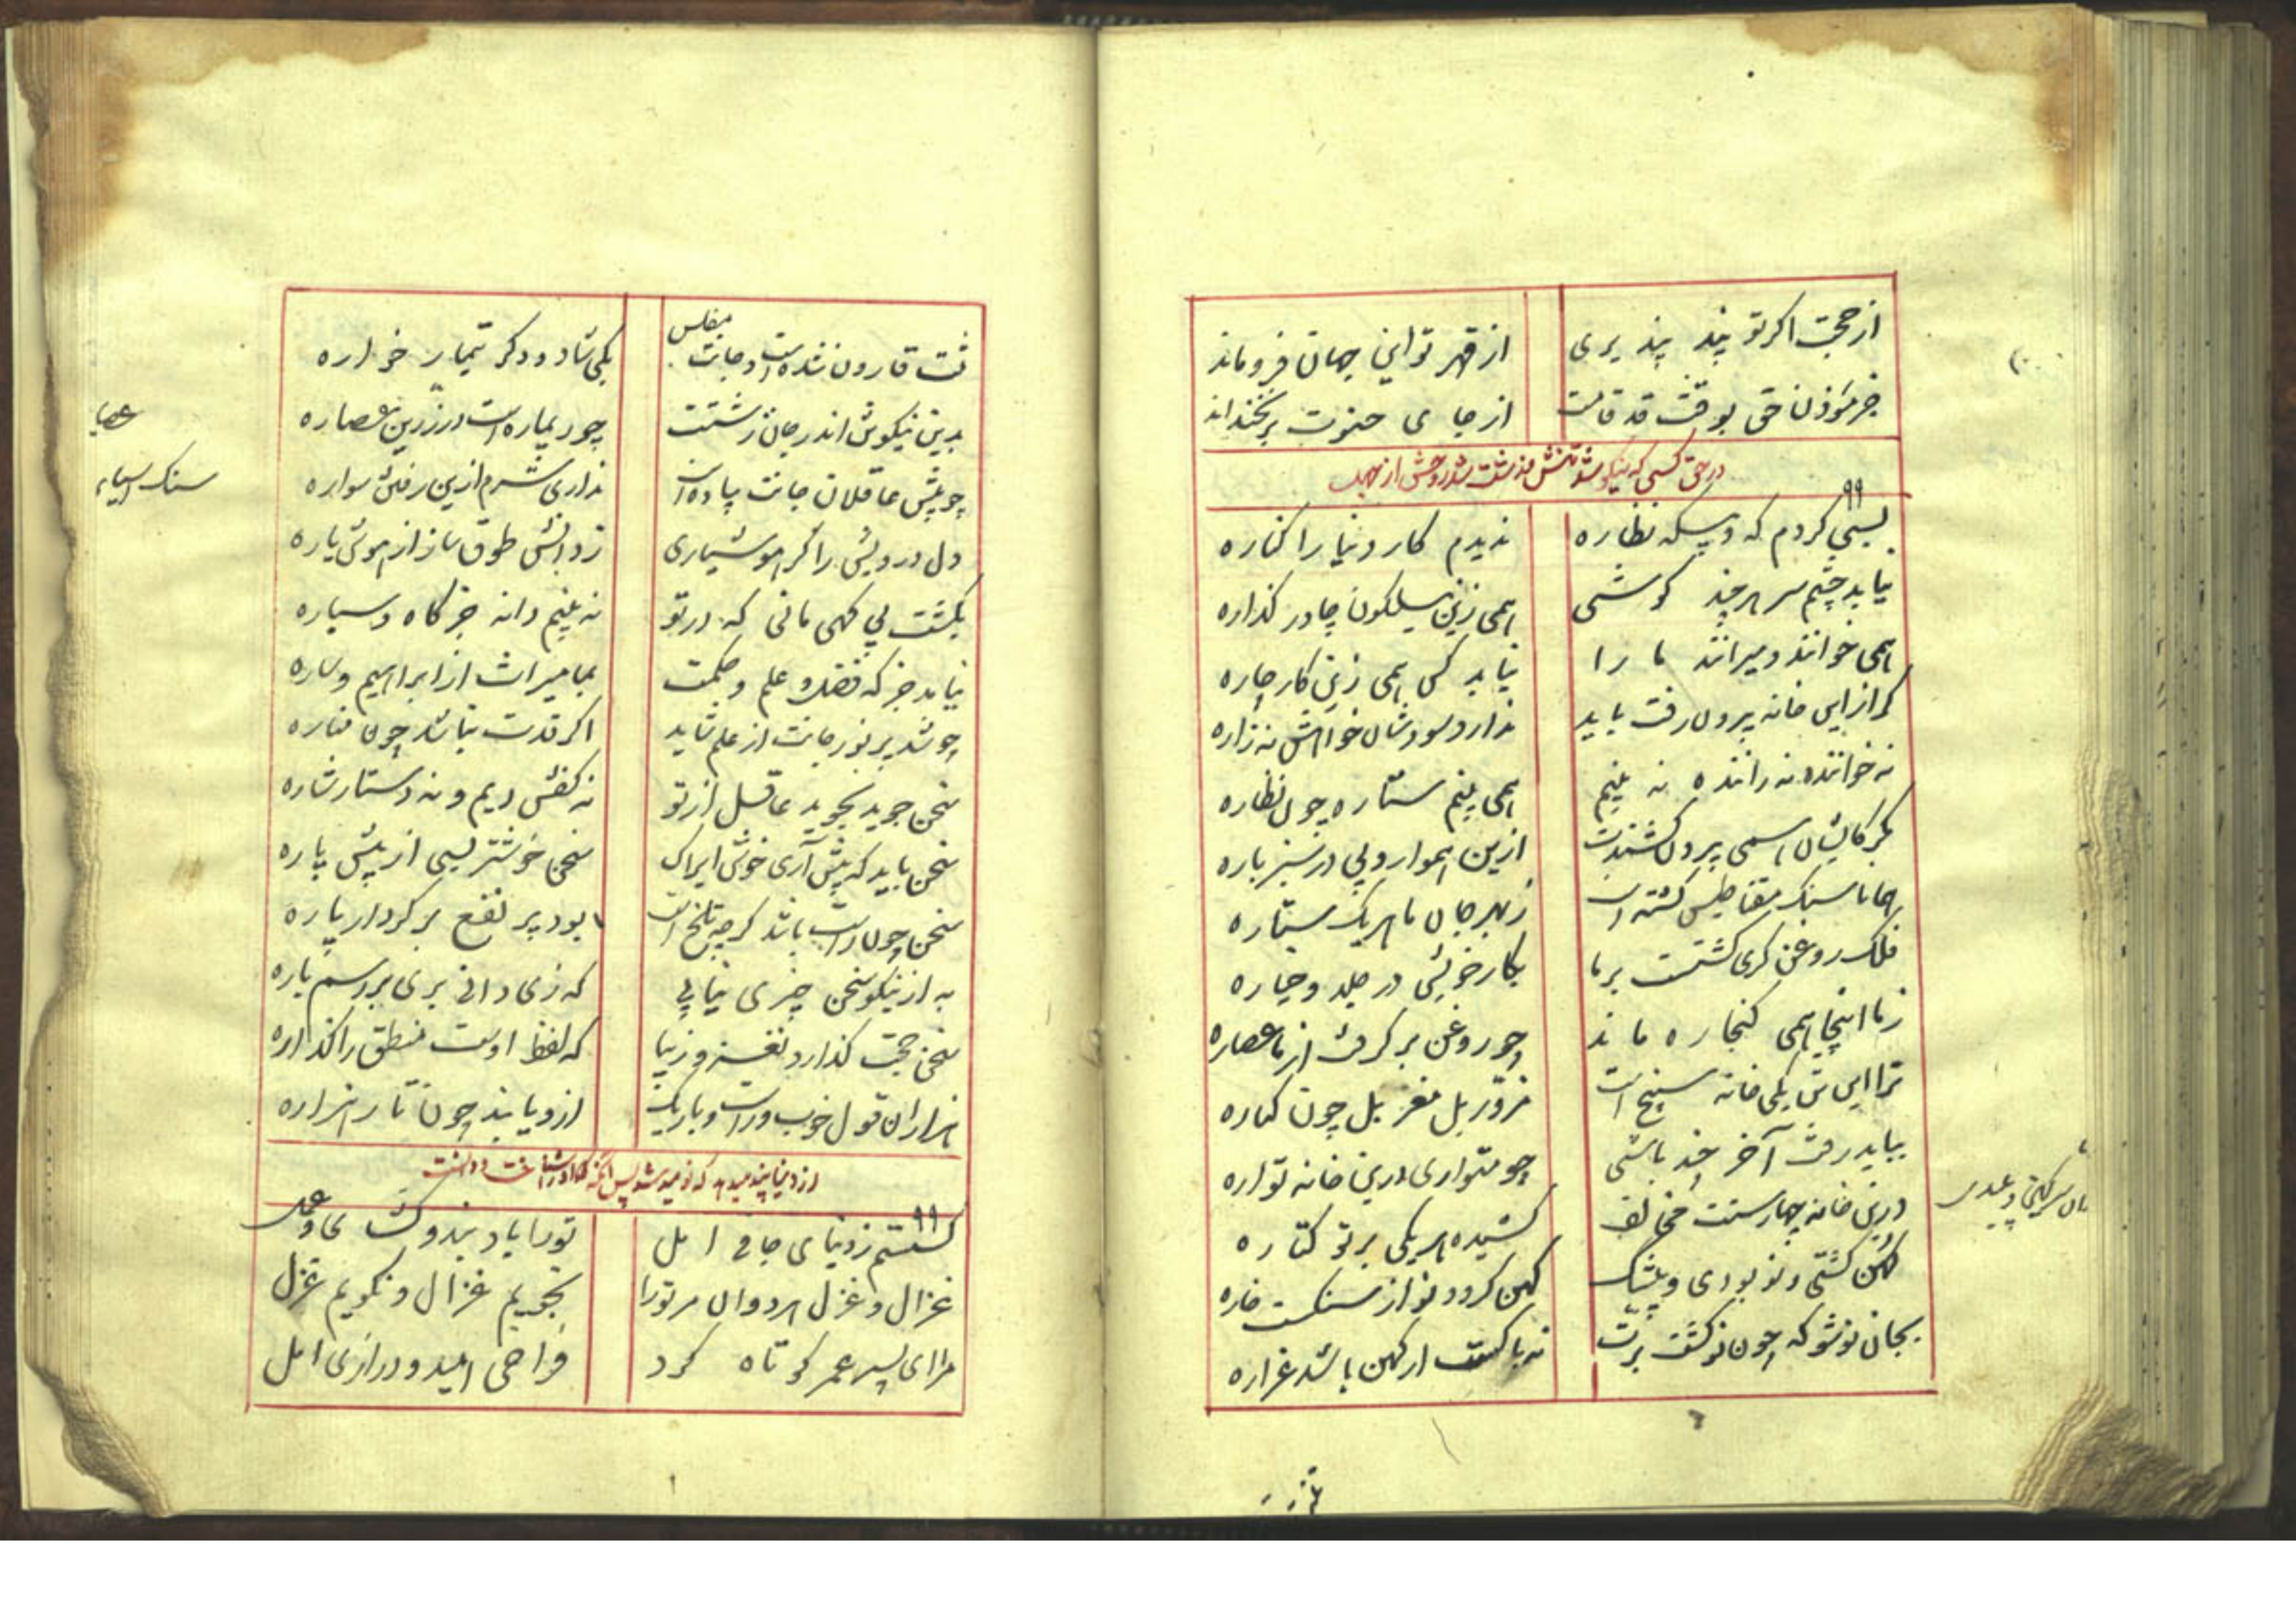 از حجت اکر تو پند پذیری از قهر تو این جهان فروماند
جز مؤذن حق بوقت قد قامت از جای خنوت برنجنداند
در حق کسی که نیکو شد تنش و زشت شد روحش از جهل
۹۹
بسی کردم که و بیکه نظاره ندیدم کار دنیا را کناره
نیابد چشم سر هرچند کوشی همی زین نیلکون چادر کذاره
همی خوانند و میرانند ما را نیابد کس همی زین کار چاره
کر از این خانه بیرون رفت باید ندارد سودشان خواهش نه زاره
نه خواننده نه راننده نه بینم همی بینم ستاره چون نظاره
ازین هموار و بی در سبز باره
بجانها سنک مغناطیس کشته است ز بهر جان ما هر یک ستاره
بکار خویش در جلد و عیاره
فلک روغن کری کشتست بر ما چو روغن بر کرفت از ما عصاره
ز ما اینجا همی کنجاره ماند
ترا این تن یکی خانه سپنج است مزور بل مغربل چون کناره
بباید رفت آخر چند باشی چو متواری درین خانه تواره
درین خانه چهارستت مخالف کشیده هر یکی بر تو کتاره
کهن کشتی و نو بودی و بیشک کهن کردد نو از سنکست خاره
بجان نو شو که چون نو کشت برنت نه باکست ار کهن باشد غزاره
تنت قارون شده است و جانت مفلس یکی شاد و دکر تیمار خواره
بدین نیکو تن اندر جان زشتت چو ریماره است در زرین عصاره
چو پیش عاقلان جانت پیاده است نداری شرم ازین رفتن سواره
دل درویش را کر هوشیاری ز دانش طوق ساز از هوش یاره
بکشت بی کهی مانی که در تو نه بینم دانه جز کاه و سپاره
نیامد جز که فضل و علم و حکمت بما میراث از ابراهیم و ساره
چو شد پر نور جانت از علم شاید اکر قدت نباشد چون مناره
سخن جوید بجوید عاقل از تو نه کفش دیم و نه دستار شاره
سخن باید که پیش آری خوش ایراک سخن خوشتر بسی از پیش پاره
سخن چون راست باشد کرچه تلخ است بود پر نفع بر کردار یاره
به از نیکو سخن چیزی نیابی که زی دانا بری بر رسم یاره
سخن حجت کذارد نغز و زیبا که لفظ اوست منطق را کذاره
هزاران قول خوب و راست و باریک ازو یابند چون تار هزاره
۹۹
کسستم ز دنیای جافی امل تو را باد بند و کشاد و عمل
غزال و غزل هر دوان مر تو را نجویم غزال و نکویم غزل
مرا ای پسر عمر کوتاه کرد فراخی امید و درازی امل
سنک اسیاء